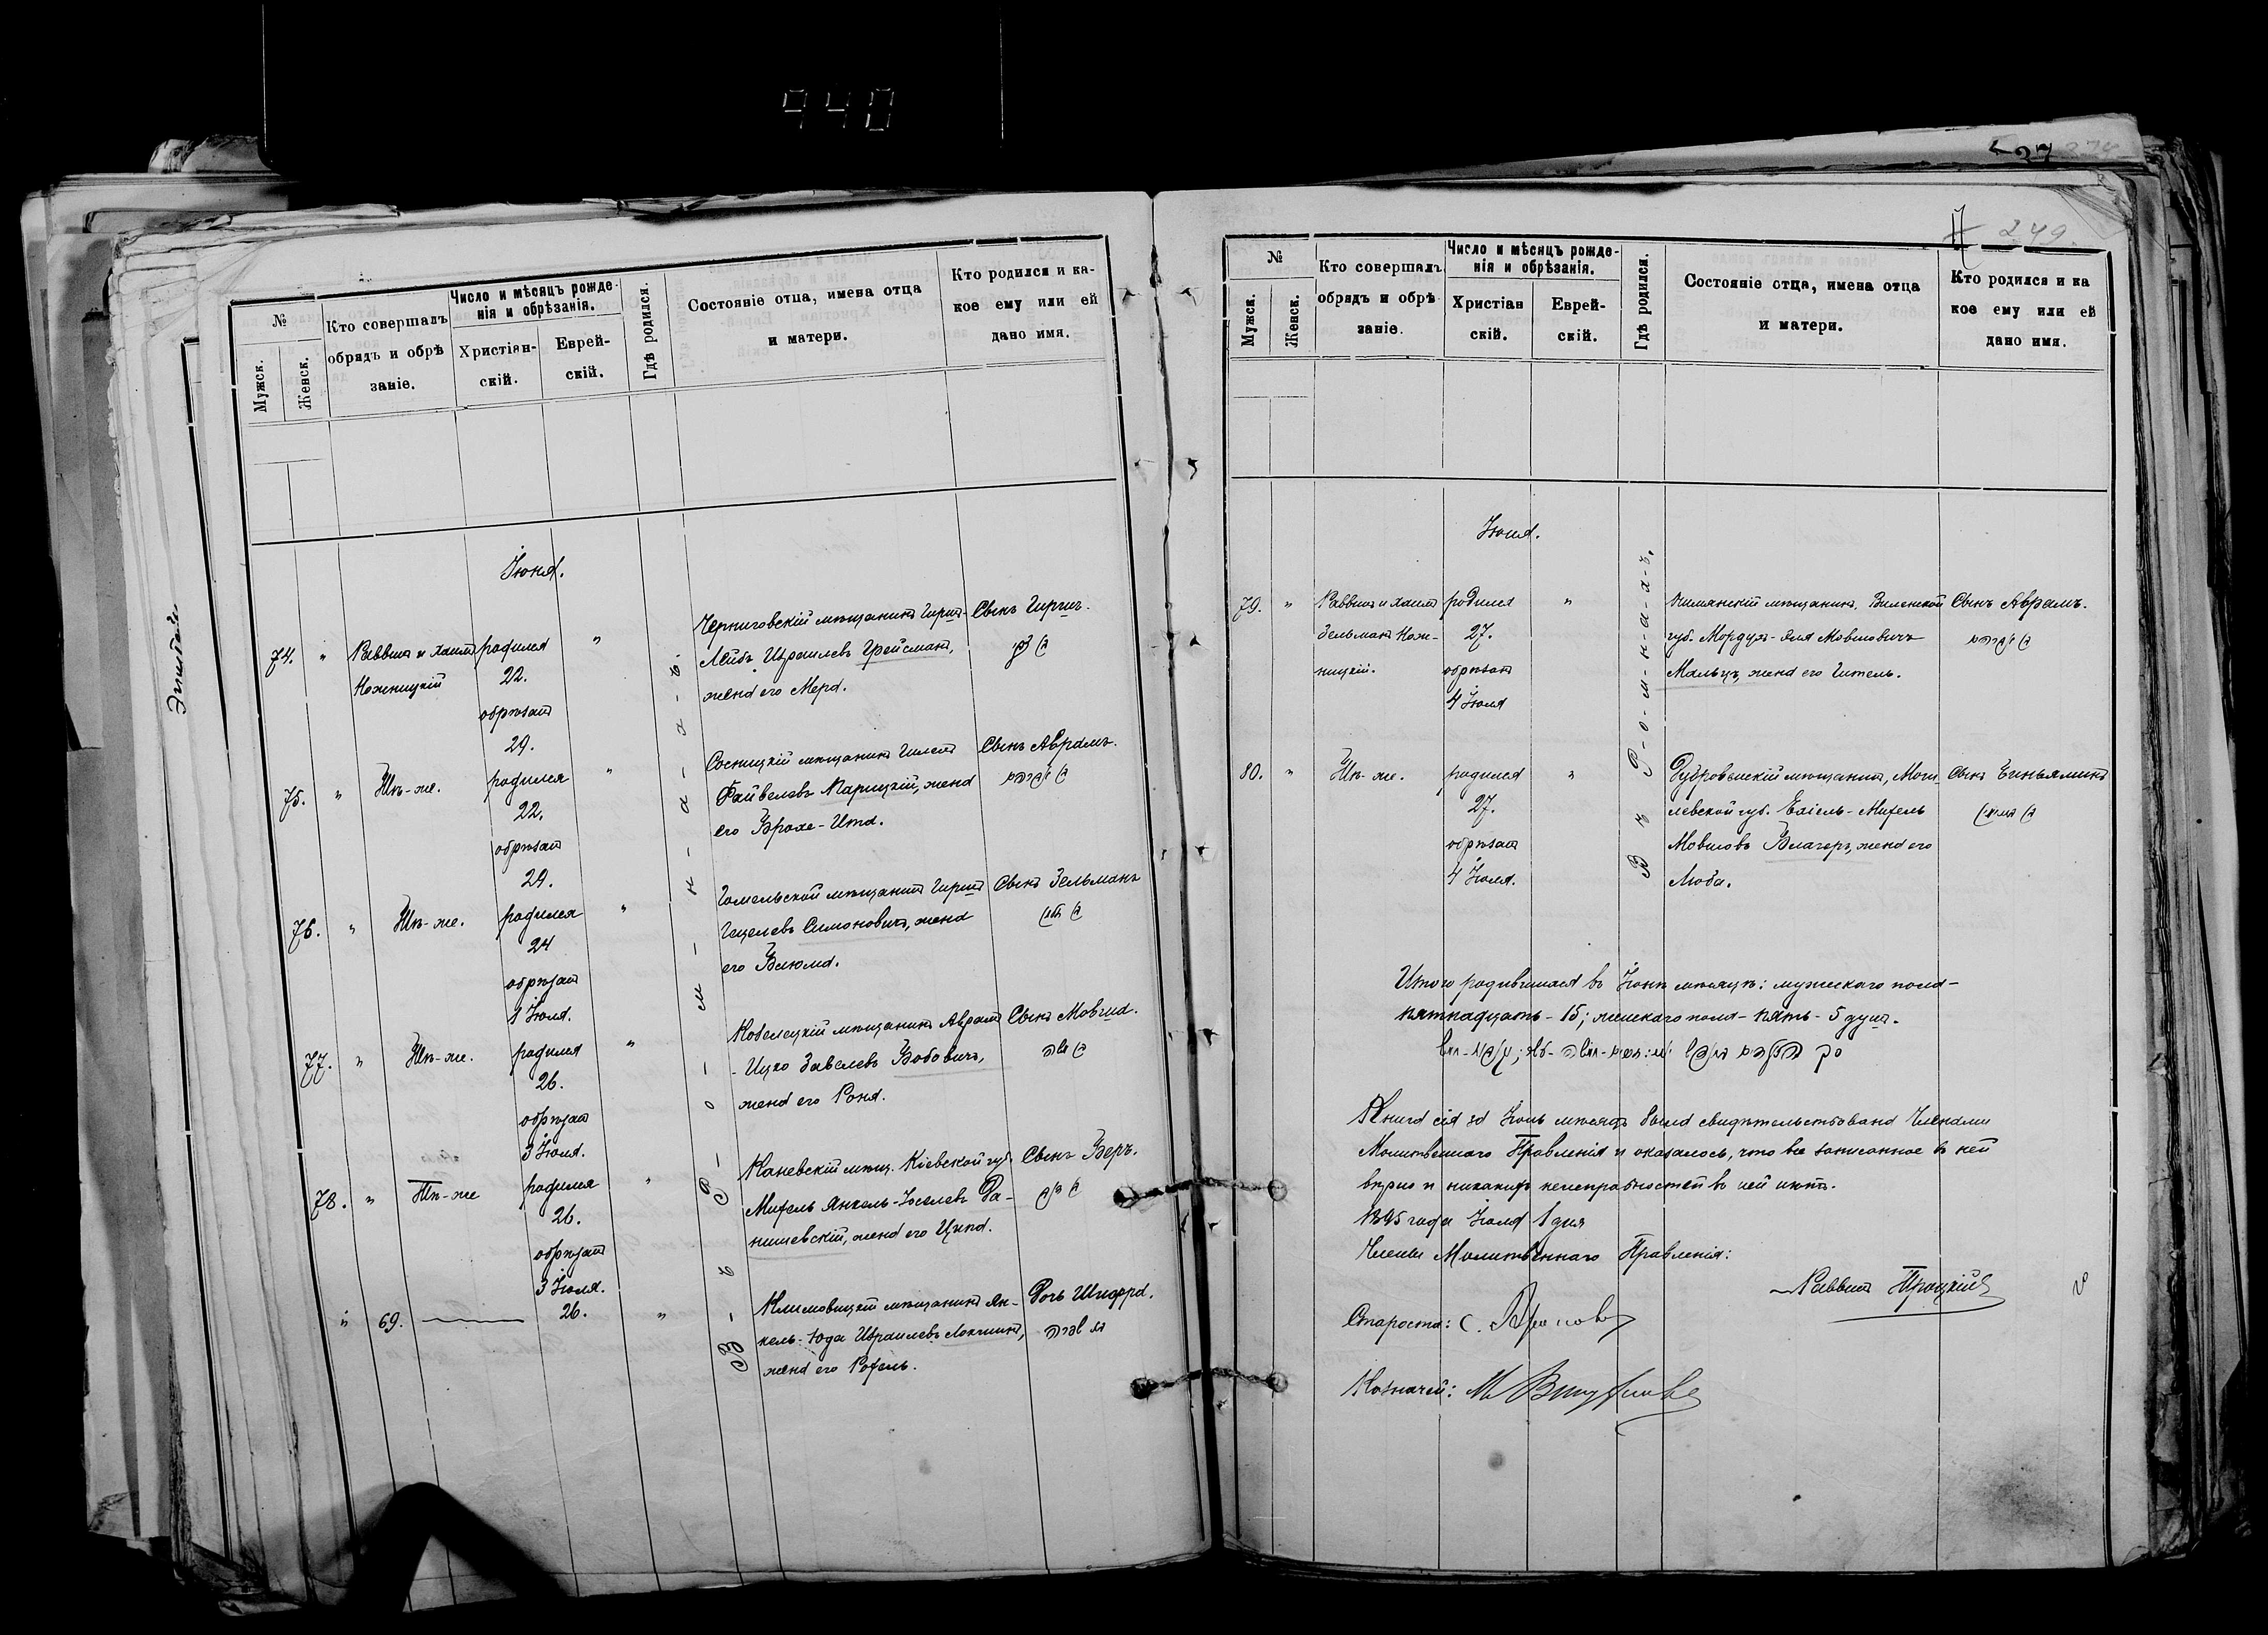 940
27 274
249.
Эпштейн
№
Мужск.
Женск.
Кто совершалъ
обрядъ и обрѣ
заніе.
Число и мѣсяцъ рожде-
нія и обрѣзанія.
Христіан-
скій.
Еврей-
скій.
Гдѣ родился.
Состояніе отца, имена отца
и матери.
Кто родился и ка-
кое ему или ей
дано имя.
Іюня.
74. " Раввинъ и Хаимъ родился "
Ножницкій 22.
обрѣзанъ
29.
Черниговскій мѣщанинъ Гиршъ-
Лейбъ Израилевъ Грейсманъ,
жена его Мера.
Сынъ Гиршъ.
75. " Тѣ-же. родился "
22.
обрѣзанъ
29.
Сосницкій мѣщанинъ
Файвелевъ Карицкій, жена
его Брохе-Ита.
Сынъ Абрамъ.
76. " Тѣ-же. родился "
24
обрѣзанъ
1 Іюля.
Гомельской мѣщанинъ Гиршъ
Гецелевъ Симоновичъ, жена
его Блюма.
Сынъ Зельманъ
77. " Тѣ-же. родился "
26.
обрѣзанъ
3 Іюля.
Козелецкій мѣщанинъ Абрамъ
-Ицко Завелевъ Бобовичъ,
жена его Роня.
Сынъ Мовша.
78. " Тѣ-же родился "
26.
обрѣзанъ
3 Іюля.
Каневскій мѣщ. Кіевской губ.
Михель Янкель-Іоселевъ Да-
нишевскій, жена его Ципа.
Сынъ Беръ.
" 69. 26. "
Климовицкій мѣщанинъ Ян-
кель-Іода Израилевъ Локшинъ,
жена его Рохель.
Дочь Шифра.
Въ Р-о-м-н-а-х-ъ.
№
Мужск.
Женск.
Кто совершалъ
обрядъ и обрѣ
заніе.
Число и мѣсяцъ рожде-
нія и обрѣзанія.
Христіан
скій.
Еврей-
скій.
Гдѣ родился.
Состояніе отца, имена отца
и матери.
Кто родился и ка
кое ему или ей
дано имя.
Іюня.
79. " Раввинъ и Хаимъ родился "
Зельманъ Нож- 27.
ницкій. обрѣзанъ
4 Іюля
мѣщанинъ, Виленской
губ. Мордухъ-Эля Мовшовичъ
Мальцъ, жена его Гитель.
Сынъ Абрамъ.
80. " Тѣ-же. родился "
27.
обрѣзанъ
4 Іюля.
Дубровенскій мѣщанинъ, Моги-
левской губ. Ехіель-Михель
Мовшовъ Благеръ, жена его
Люба.
Сынъ Биньяминъ
בן בנימין
Въ Р-о-м-н-а-х-ъ.
Итого родившихся въ Іюнѣ мѣсяцѣ: мужескаго пола-
пятнадцать-15; женскаго пола-пять-5 душъ.
Книга сія за Іюнь мѣсяцъ была свидѣтельствована Членами
Молитвеннаго Правленія и оказалось, что все записанное въ ней
вѣрно и никакихъ неисправностей въ ней нѣтъ.
1895 года Іюля 1 дня
Члены Молитвеннаго Правленія:
Раввинъ Троцкій
Староста: С.
Казначей: М